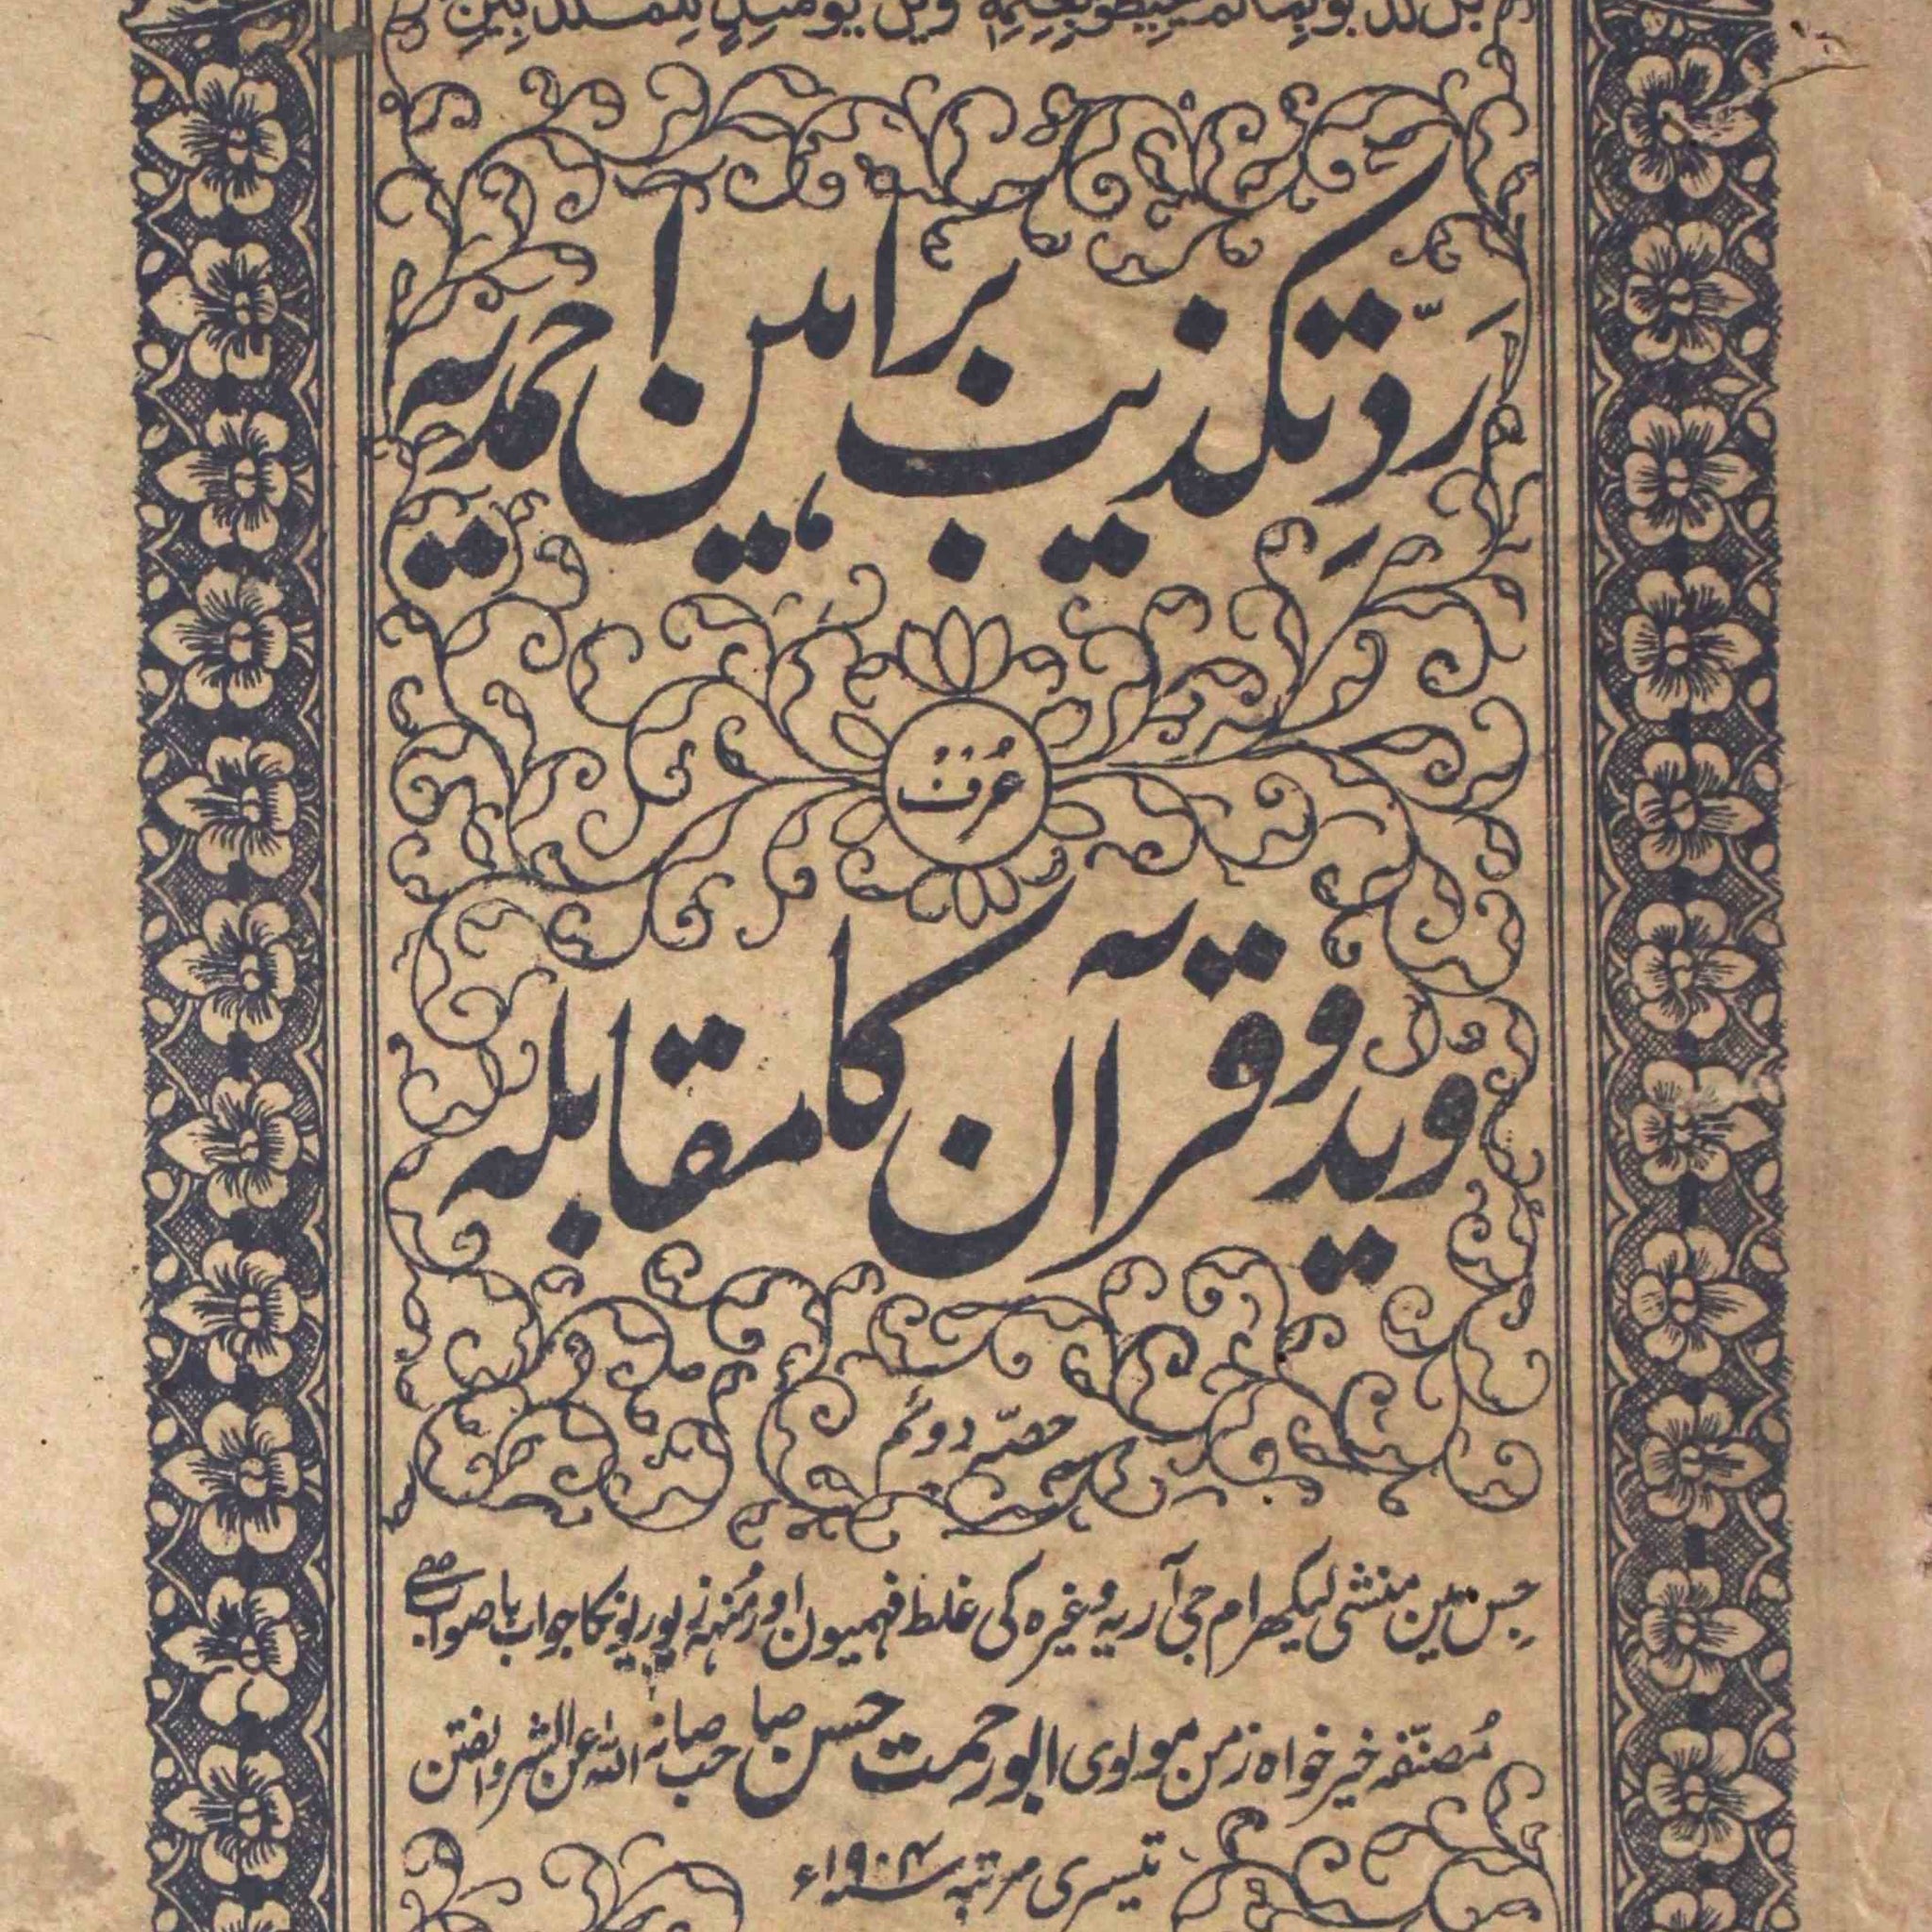 بل كذبوا بما لم يحيطوا بعلمه ويل يومئذ للمكذبين
رَدِّ تکذیب براہین احمدیہ
عُرف
وید و قرآن کا مقابلہ
حصّہ دوئم
جس مین منشی لیکھرام جی آریہ وغیرہ کی غلط فہمیون اور مُنہہ زوریونکا جواب باصواب ہے
مُصنّفہ خیرخواہ زمن مولوی ابو رحمت حسن صاحب صانہ اللہ عن الشر والفتن
تیسری مرتبہ سنہ ۱۹۰۴ء